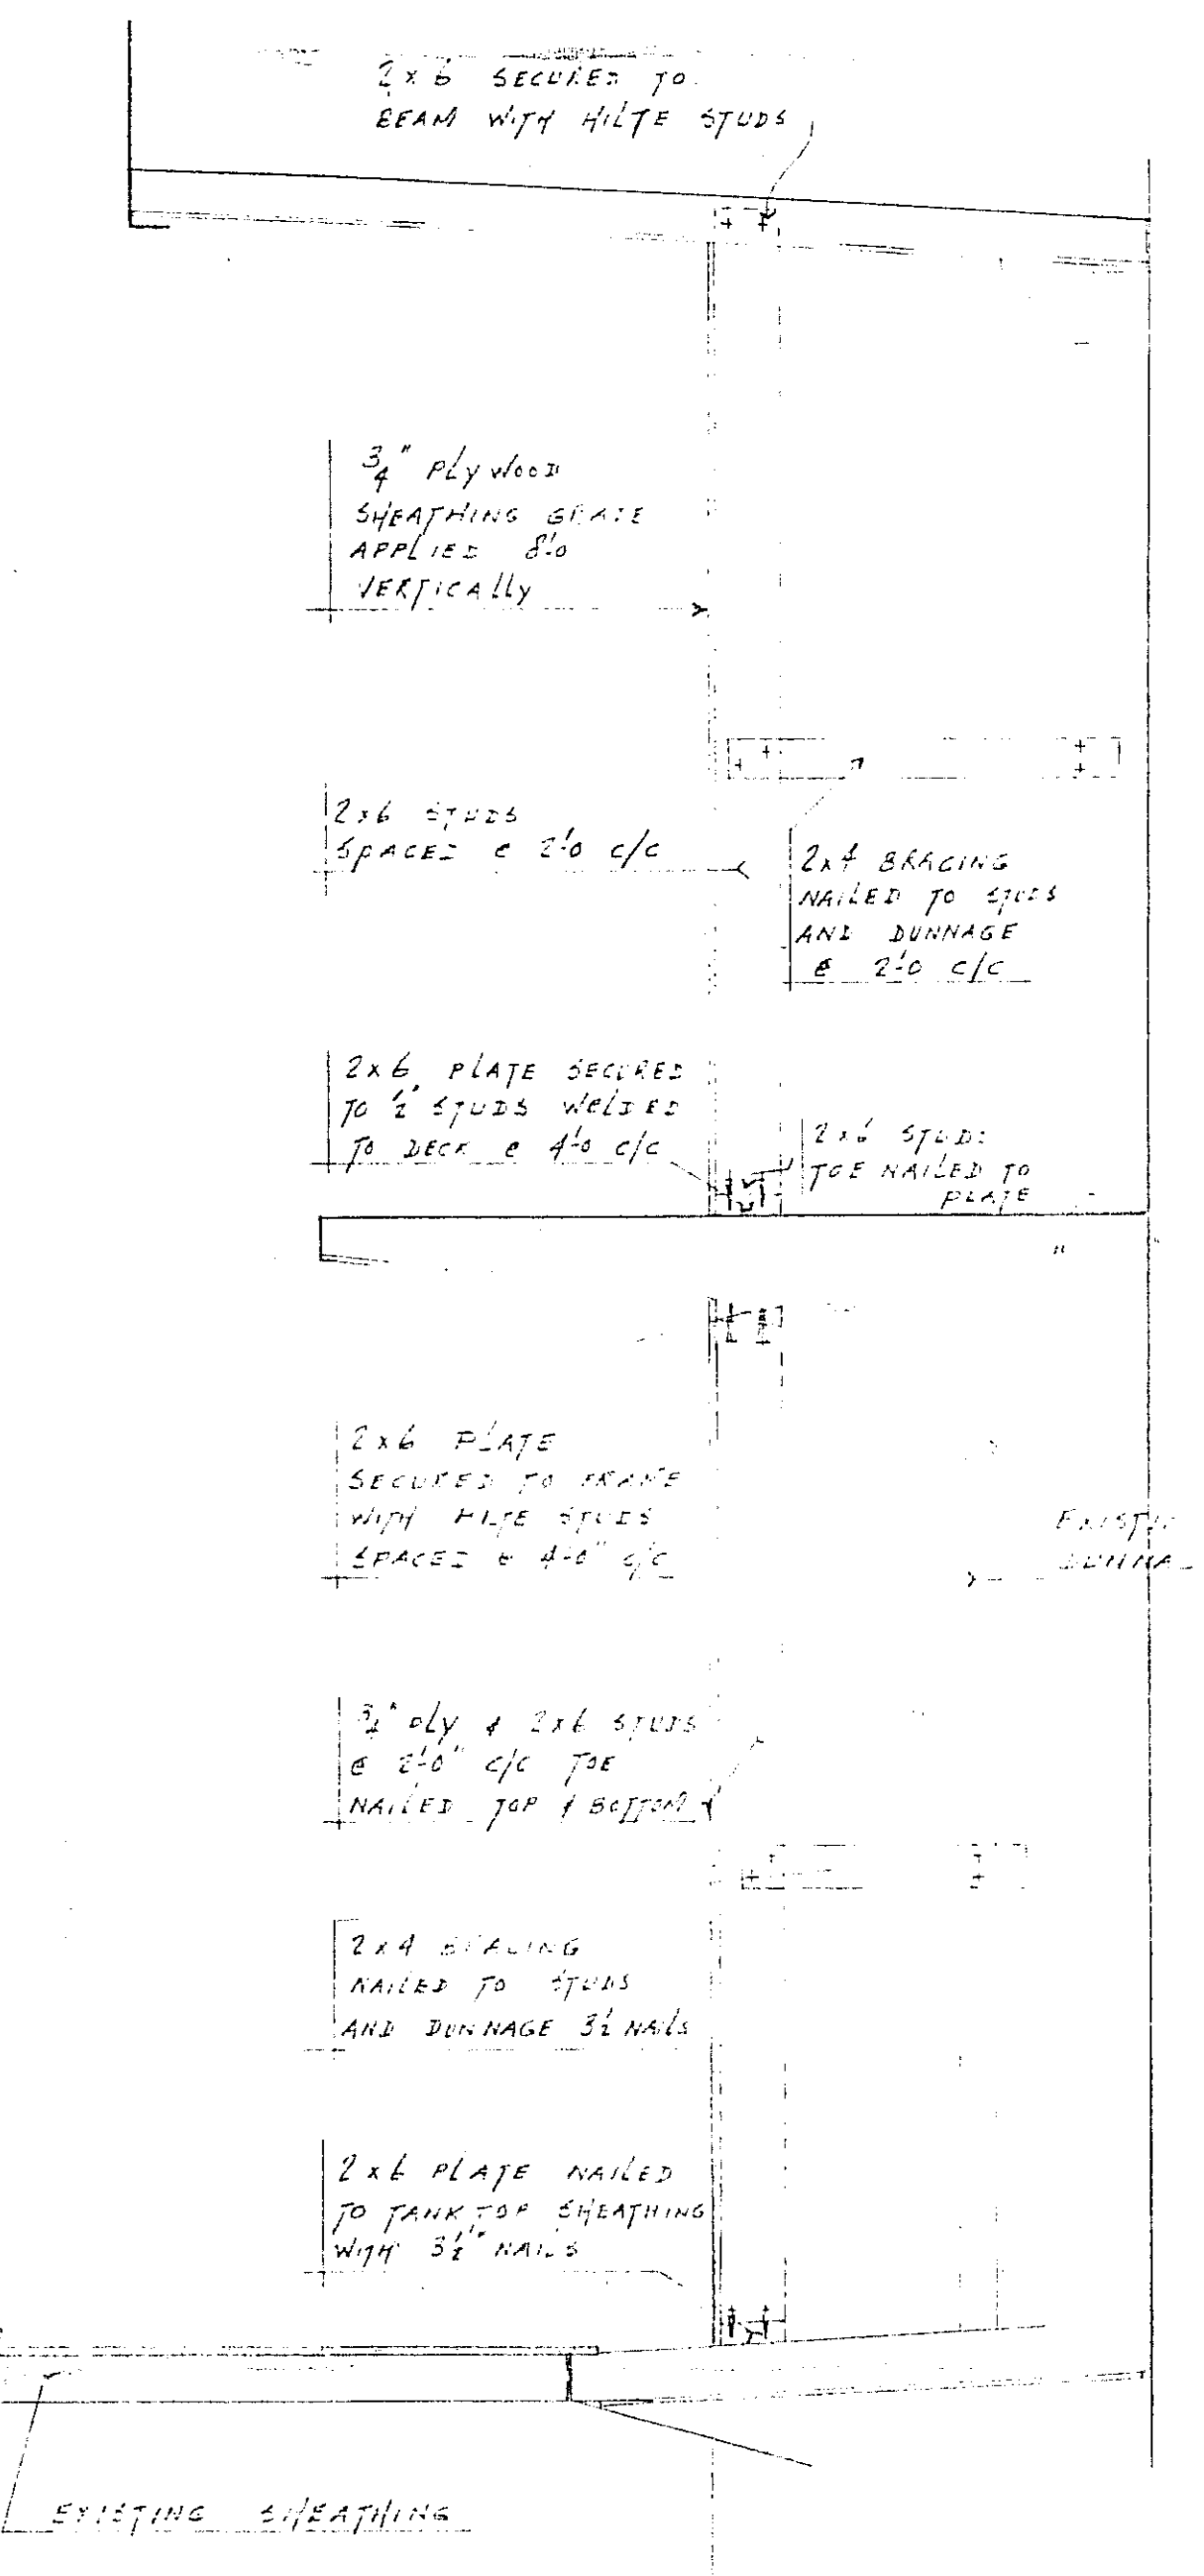 2x6 SECURED TO
BEAM WITH HILTE STUDS
3/4" PLYWOOD
SHEATHING GRADE
APPLIED 8'-0
VERTICALLY
2x6 STUDS
SPACED @ 2'-0 C/C
2x4 BRACING
NAILED TO STUDS
AND DUNNAGE
@ 2'-0 C/C
2x6 PLATE SECURED
TO 1/2" STUDS WELDED
TO DECK @ 4'-0 C/C
2x6 STUDS
TOE NAILED TO
PLATE
2x6 PLATE
SECURED TO FRAME
WITH HILTE STUDS
SPACED @ 4'-0" C/C
EXISTIN
DUNNA
3/4" PLY & 2x6 STUDS
@ 2'-0" C/C TOE
NAILED TOP & BOTTOM
2x4 BRACING
NAILED TO STUDS
AND DUNNAGE 3 1/2 NAILS
2x6 PLATE NAILED
TO TANK TOP SHEATHING
WITH 3 1/2" NAILS
EXISTING SHEATHING